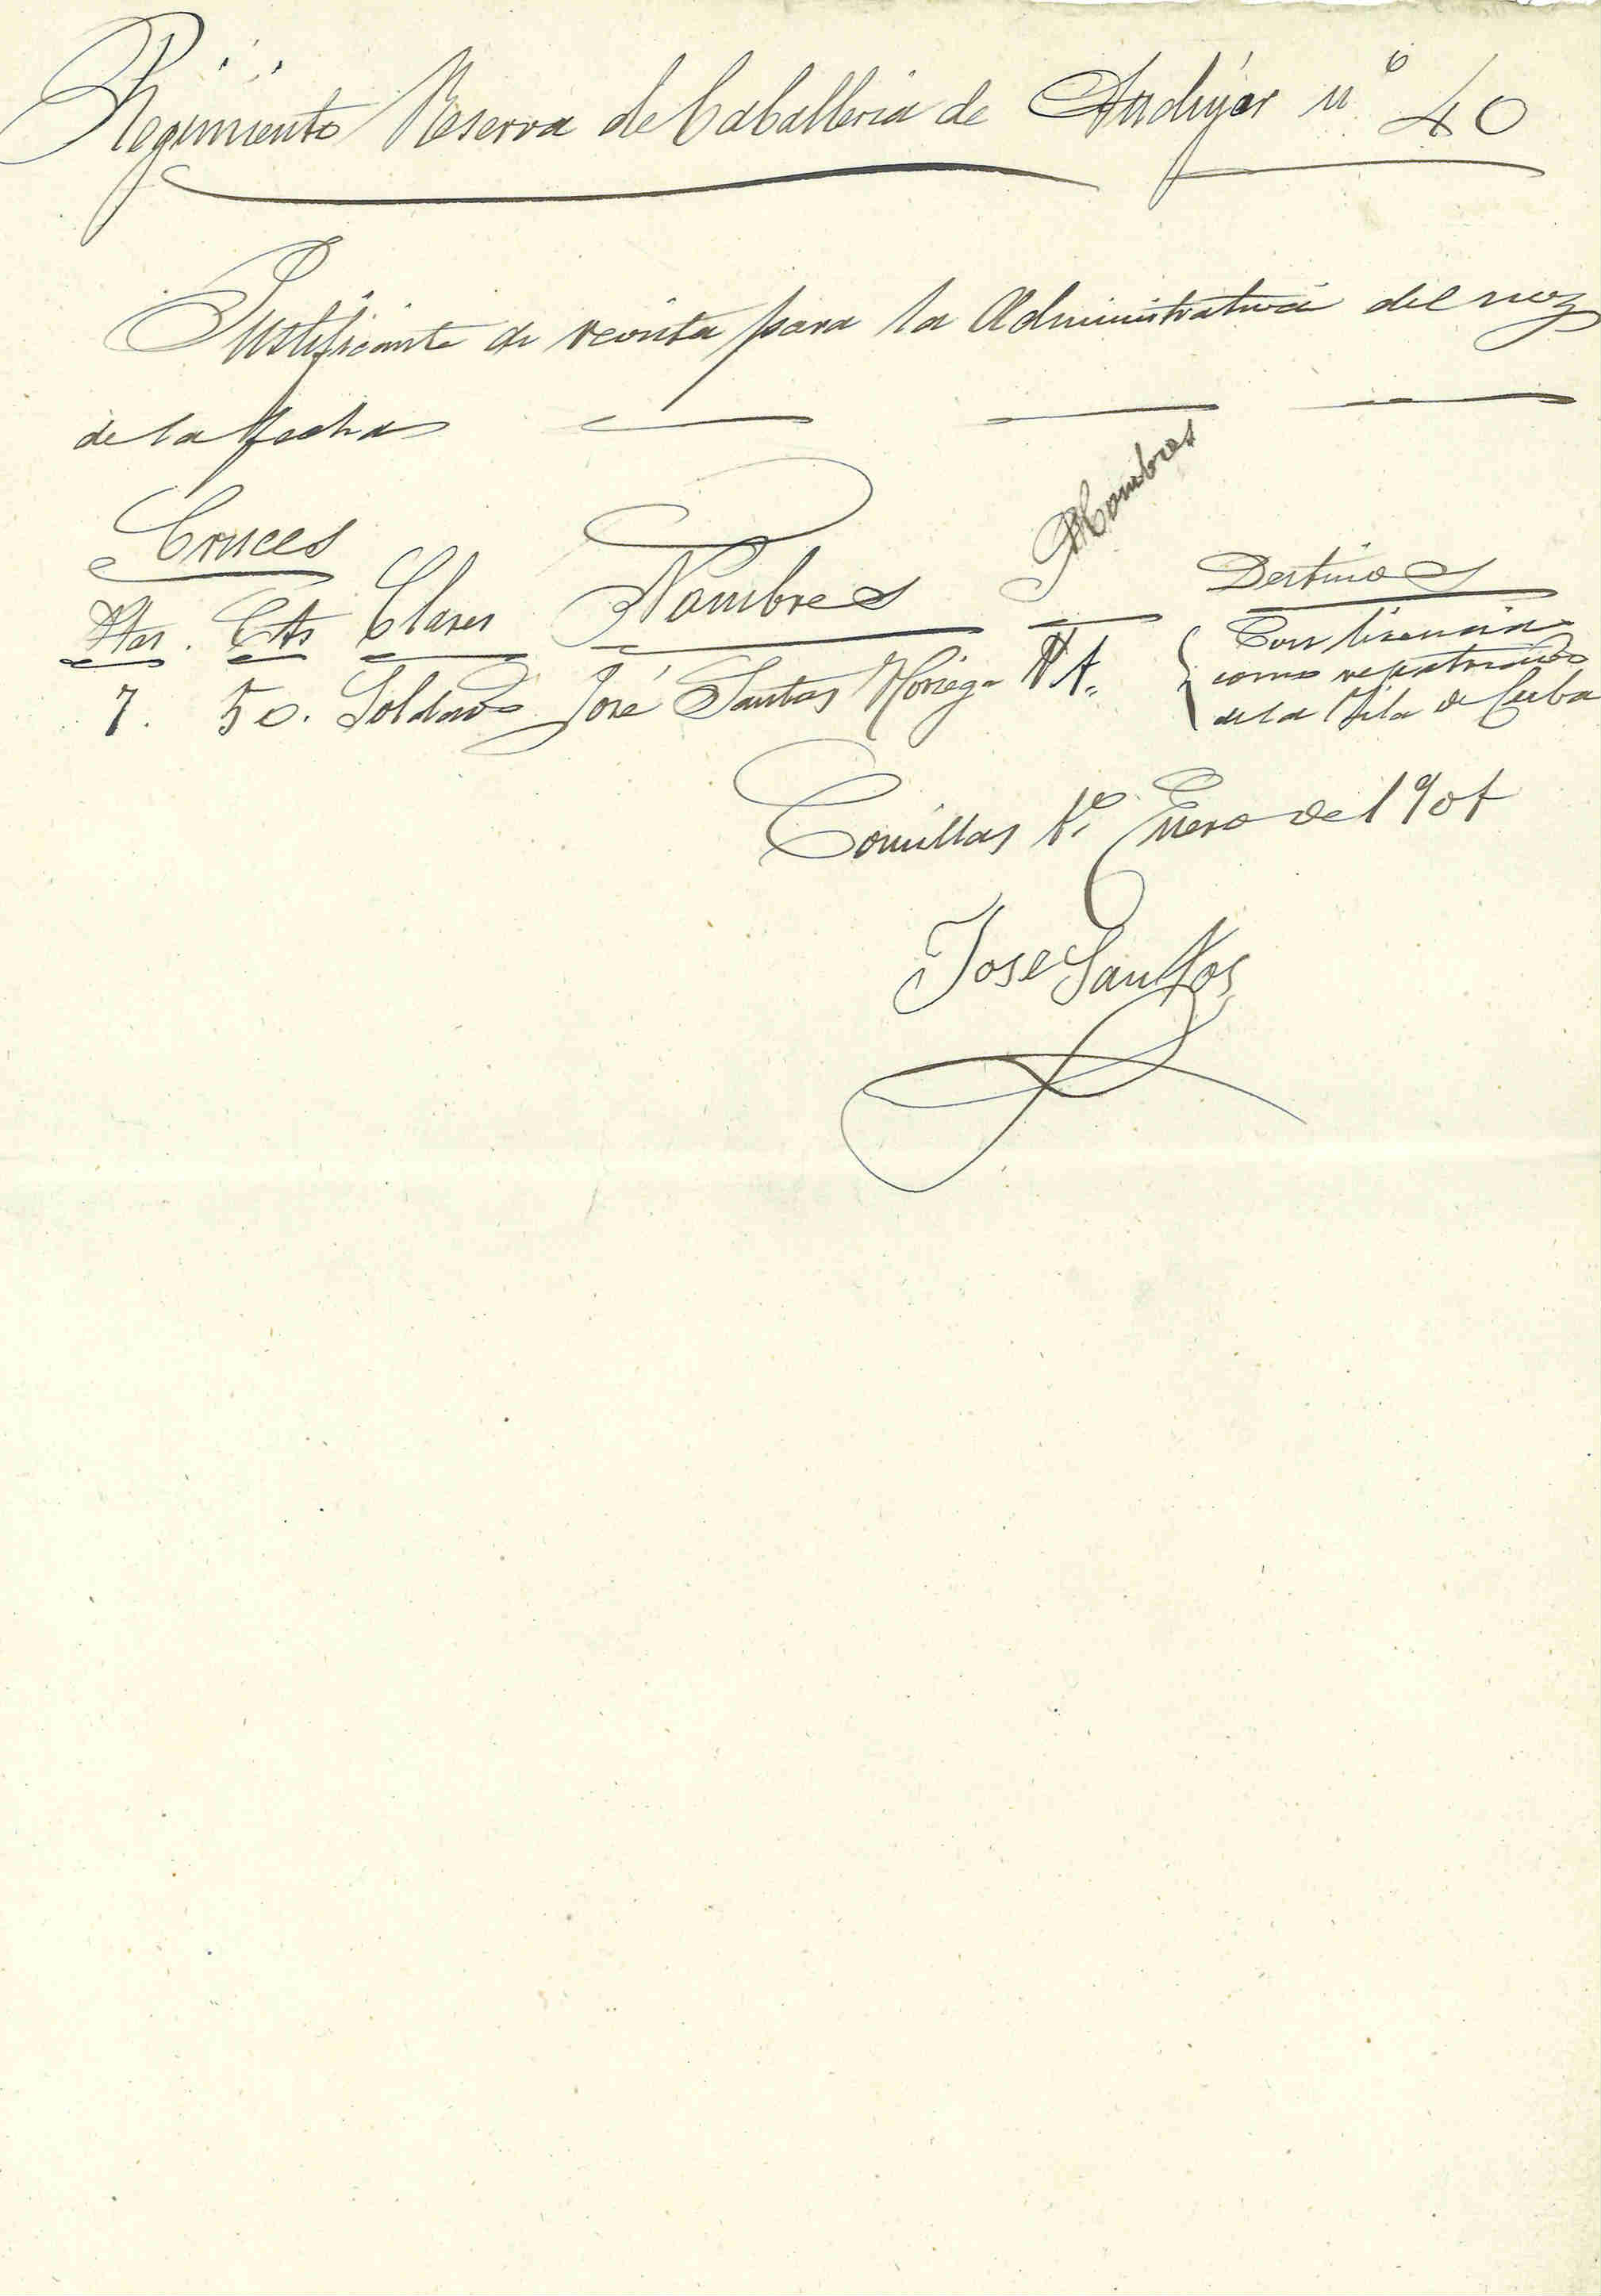 Regimiento Reserva de Caballeria de Andújar nº 40
Justificante de revista para la Administrativa del mes
de la fecha
Cruces
Ptas. Cts Clases Nombres Hombres Destinos
7. 50. Soldado José Santos Noriega 1. Con licencia
como repatriado
de la Isla de Cuba
Comillas 1º Enero de 1901
Jose Santos